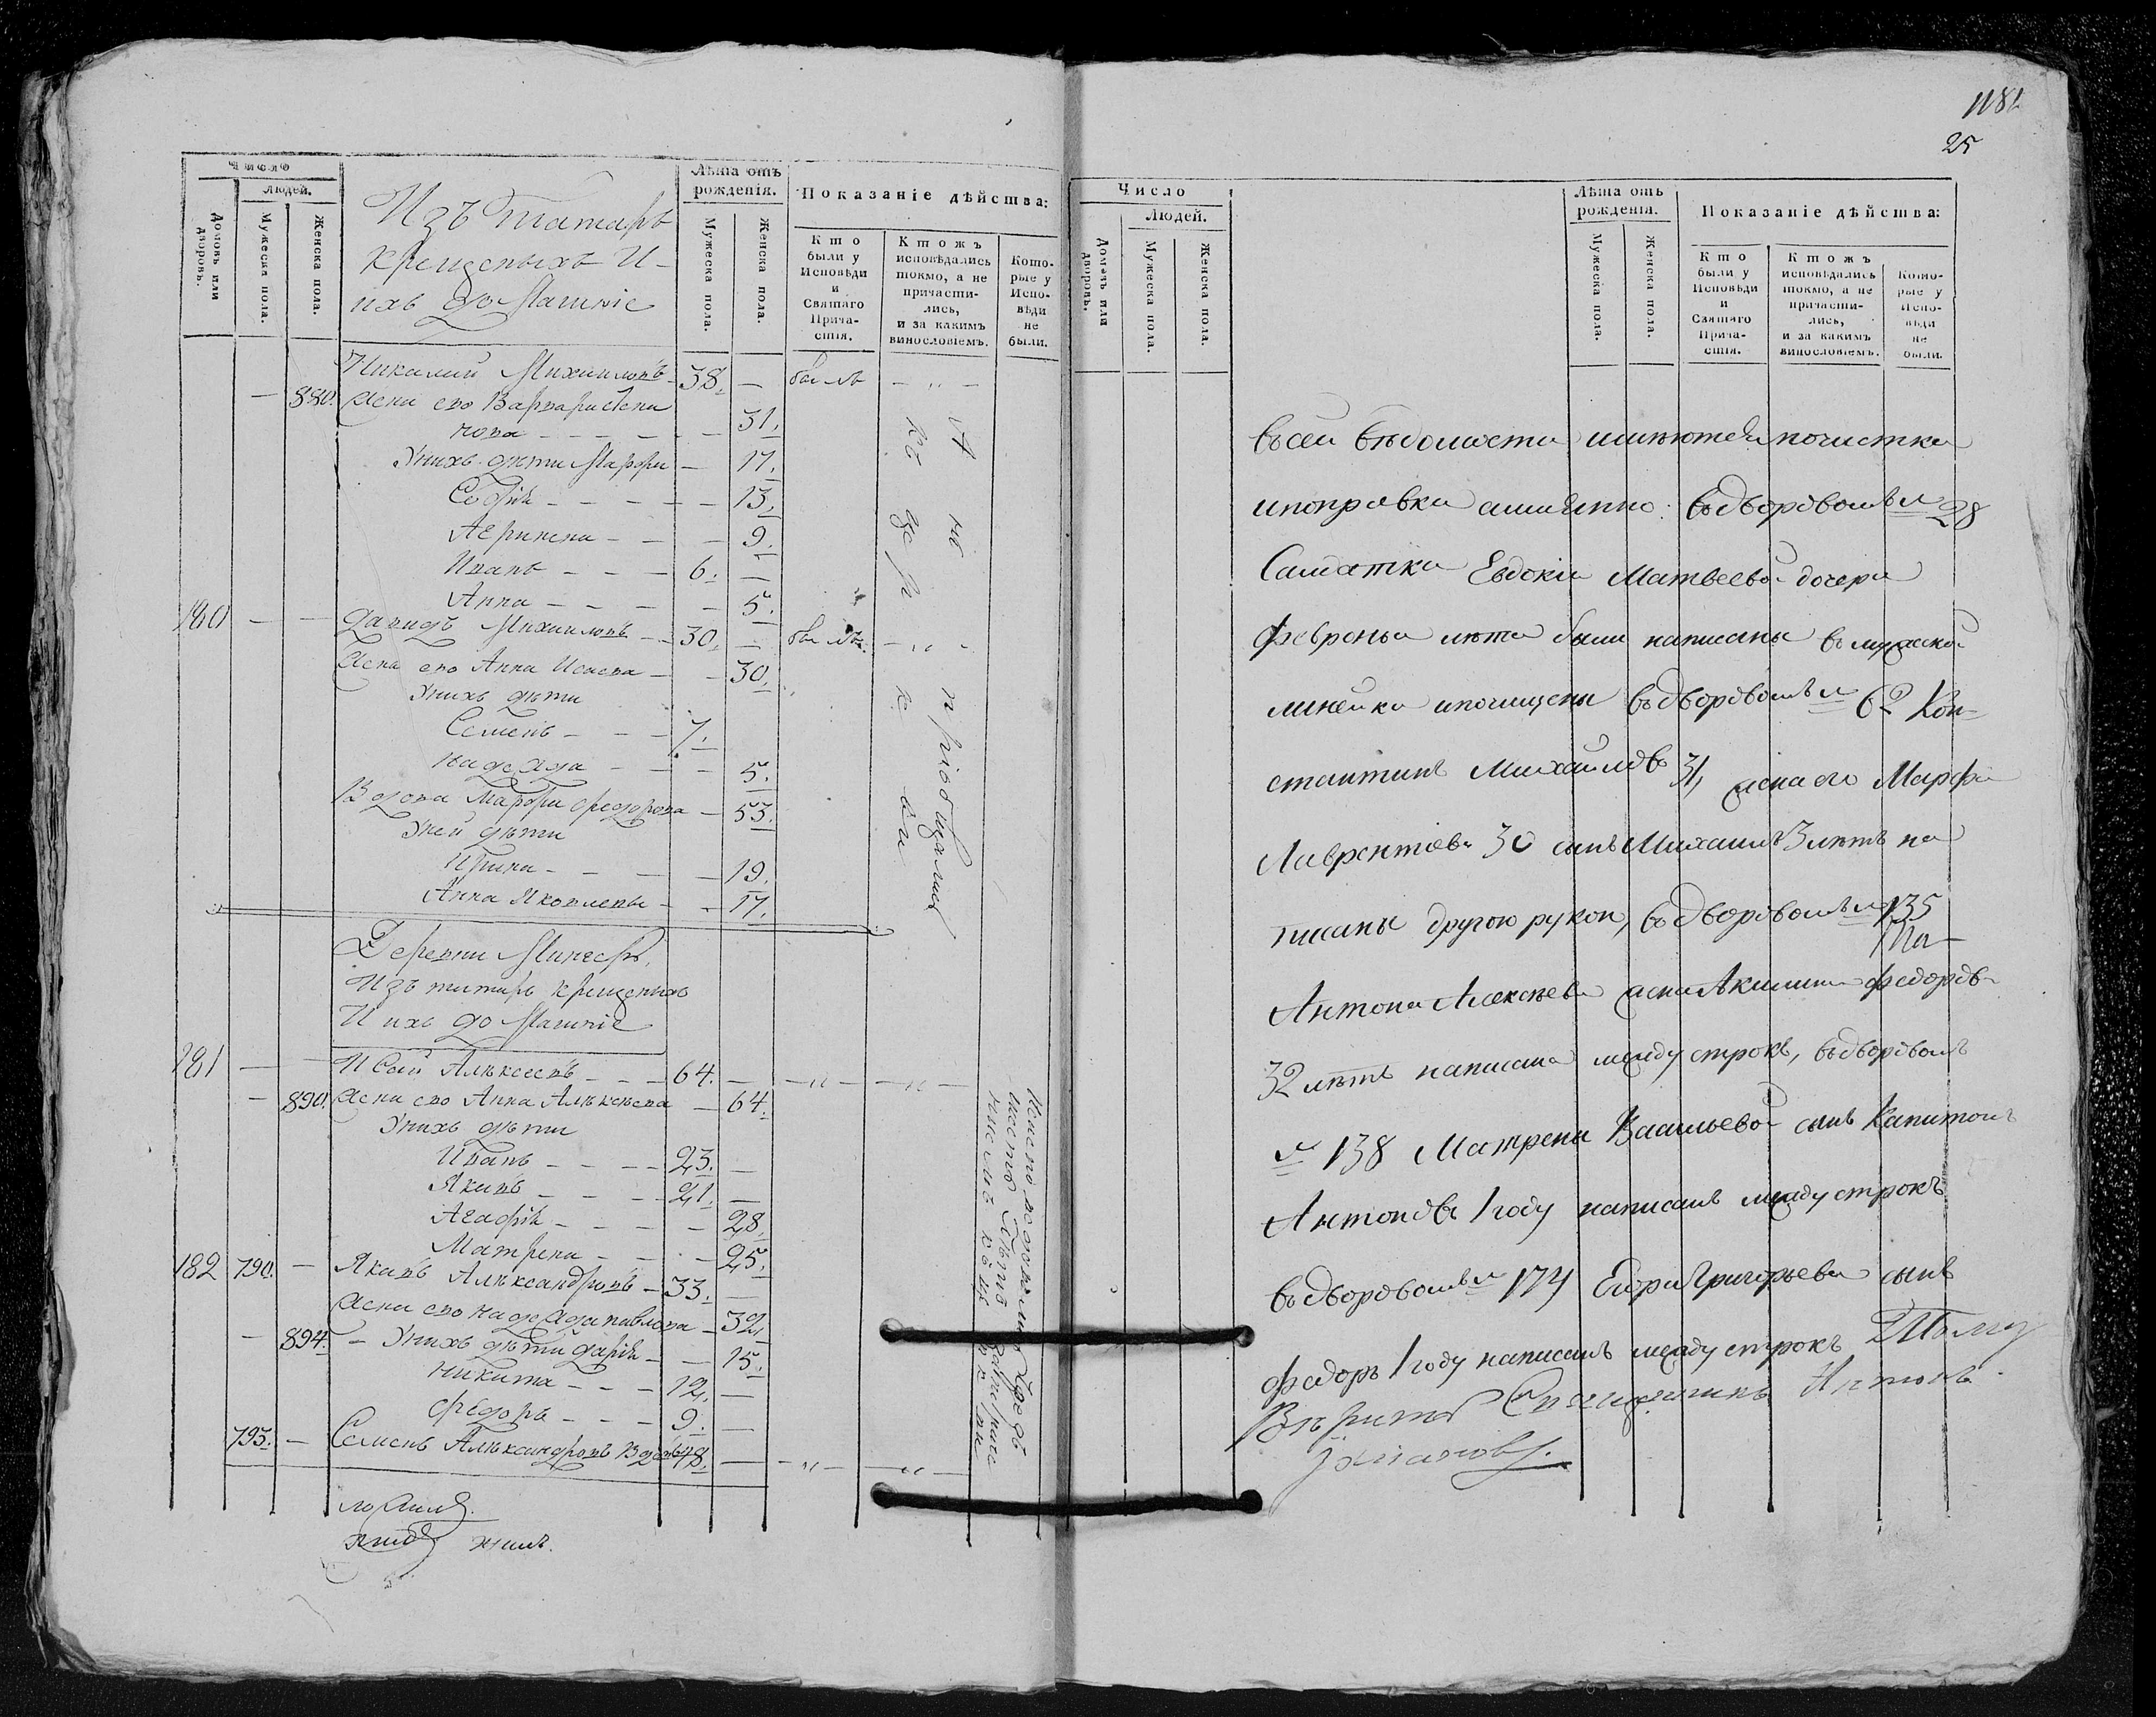 Число
Людей.
Домовъ или дворовъ.
Мужеска пола.
Женска пола.
Изъ татаръ
крещеныхъ И
ихъ домашніе
Лѣта отъ рожденія.
Мужеска пола.
Женска пола.
Показаніе дѣйства:
Кто были у Исповѣди и Святаго Причастія.
Ктожъ исповѣдались токмо, а не причастились, и за какимъ винословіемъ.
Которые у Исповѣди не были.
Николай Михаиловъ 38. — былъ — „ —
— 880. жена его Варвара
31.
Унихъ дѣти Марфа — 17.
Софія — 13.
Агрипена — 9.
Иванъ — 6. —
Анна — 5.
180 — — Давидъ Михаиловъ — 30. — былъ — „ —
жена его Анна Исаева — 30.
Унихъ дѣти
Семенъ — 7.
Надежда — 5.
Вдова Марфа Федорова — 53.
Уней дѣти
Ирина — 19.
Анна Яковлевы — 17.
Деревни
Изъ татаръ крещеныхъ
И ихъ домашніе
181 — — Исай Алѣксеевъ — 64. — — „ — — „ —
— 890. жена его Анна Алѣксѣева — 64.
Унихъ дѣти
Иванъ — 23. —
Якивъ — 21. —
Агафія — 28.
Матрена — 25.
182 790. — Якивъ Алѣксандровъ — 33. —
жена его Надежда Павлова — 32.
— 894. — Унихъ дѣти Дарія — 15.
Никита — 12. —
Федоръ — 9. —
793. — Семенъ Алѣксандровъ Вдовъ 48. — — „ — — „ —
1181
25
Число
Людей.
Домовъ или дворовъ.
Мужеска пола.
Женска пола.
Лѣта отъ рожденія.
Мужеска пола.
Женска пола.
Показаніе дѣйства:
Кто были у Исповѣди и Святаго Причастія.
Ктожъ исповѣдались токмо, а не причастились, и за какимъ винословіемъ.
Которые у Исповѣди не были.
Въсей вѣдомости имѣются почистки
ипоправки аимянно: Въдворовомъ № 28
Салдатки Евдокіи Матвеевой дочери
Февроньи лѣта были написаны в мужеской
линейки ипочищены Въдворовомъ № 62 Кон-
стантинъ Михаиловъ 31, жена ево Марфа
Лаврентіева 30 сынъ Михаилъ 3 лѣтъ на
писаны другою рукои, въдворовомъ № 135
Антона Алексѣева жена Акилина Федорова
32 лѣтъ написана между строкъ, въдворовомъ
№ 138 Матрены Васильевой сынъ Капитонъ
Антоновъ 1 году написанъ между строкъ
въдворовомъ № 174 Егора Григорьева сынъ
Федоръ 1 году написанъ между строкъ
Священникъ Антонъ